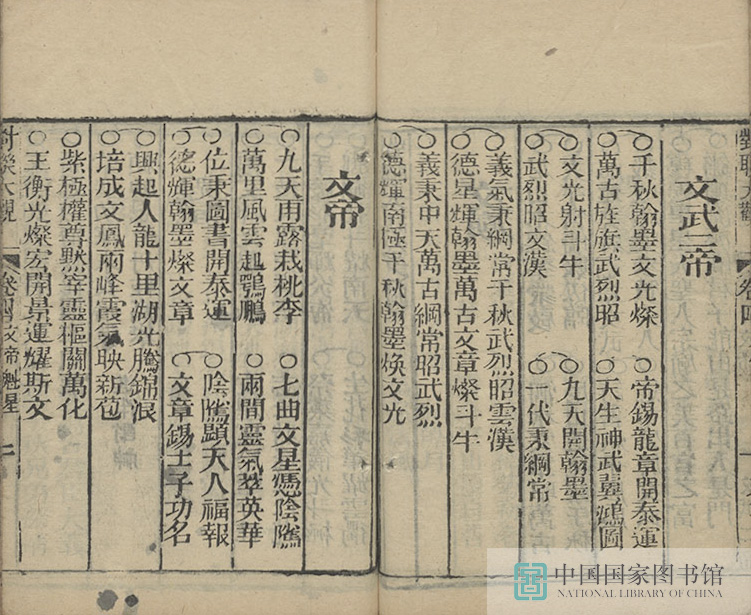 對聯大觀 卷四
文武二帝
○千秋翰墨文光燦 ○帝錫龍章開泰運
萬古旌旗武烈昭 ○天生神武翼鴻圖
○文光射斗牛 ○九天開翰墨
武烈昭文漢 ○一代秉綱常
○義氣秉綱常千秋武烈昭雲漢
德星輝翰墨萬古文章燦斗牛
○義秉中天萬古綱常昭武烈
德輝南極千秋翰墨煥文光
文帝
○九天雨露栽桃李 ○七曲文星憑陰隲
萬里風雲起鶚鵬 ○兩間靈氣萃英華
○位秉圖書開泰運 ○陰隲顯天人福報
德輝翰墨燦文章 ○文章錫士子功名
○興起人龍十里湖光騰錦浪
培成文鳳兩峰霞氣映新苞
○紫極權尊默宰靈樞關萬化
○玉衡光燦宏開景運耀斯文
對聯大觀 卷四文帝魁星
中国国家图书馆
NATIONAL LIBRARY OF CHINA